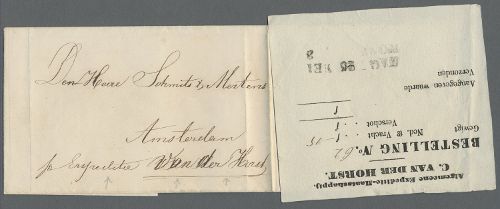 Den Heere Schmitz & Mertens
Amsterdam
pr Expeditie Van der Horst
Algemeene Expeditie-Maatschappij,
C. VAN DER HORST.
BESTELLING No. 62
Gewigt
Ned. ℔ Vracht
Verschot
Aangegeven waarde
Verzonden